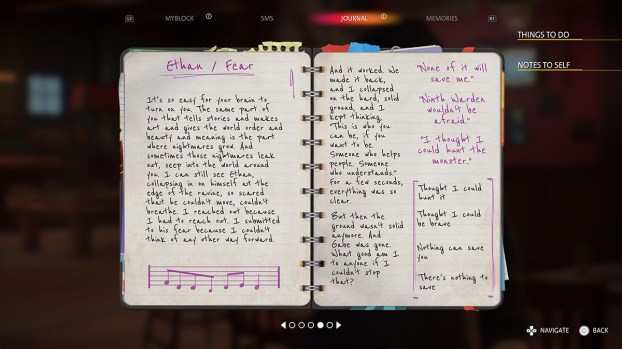 L1
MYBLOCK
SMS
JOURNAL
MEMORIES
R1
THINGS TO DO
NOTES TO SELF
Ethan / Fear
It's so easy for your brain to
turn on you. The same part of
you that tells stories and makes
art and gives the world order and
beauty and meaning is the part
where nightmares grow. And
sometimes those nightmares leak
out, seep into the world around
you. I can still see Ethan,
collapsing in on himself at the
edge of the ravine, so scared
that he couldn't move, couldn't
breathe. I reached out because
I had to reach out. I submitted
to his fear because I couldn't
think of any other way forward.
And it worked. We
made it back,
and I collapsed
on the hard, solid
ground, and I
kept thinking,
"This is who you
can be, if you
want to be.
Someone who helps
people. Someone
who understands."
For a few seconds,
everything was so
clear.
But then the
ground wasn't solid
anymore. And
Gabe was gone.
What good am I
to anyone if I
couldn't stop
that?
"None of it will
save me."
"Ninth Warden
wouldn't be
afraid."
"I thought I
could hunt the
monster."
Thought I could
hunt it
Thought I could
be brave
Nothing can save
you
There's nothing to
save
NAVIGATE
BACK